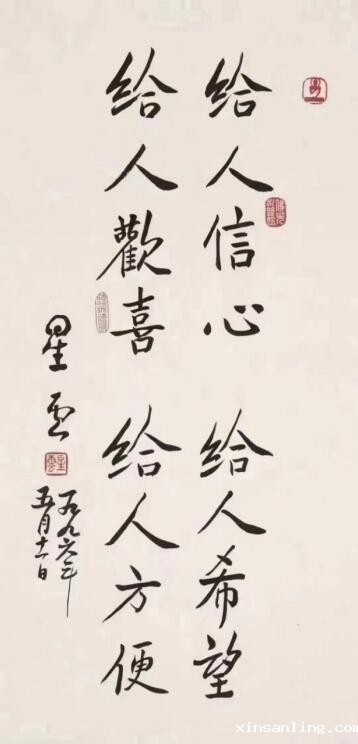 给人信心 给人希望
给人歡喜 给人方便
星云
一九九六年
五月十一日
xinsanling.com